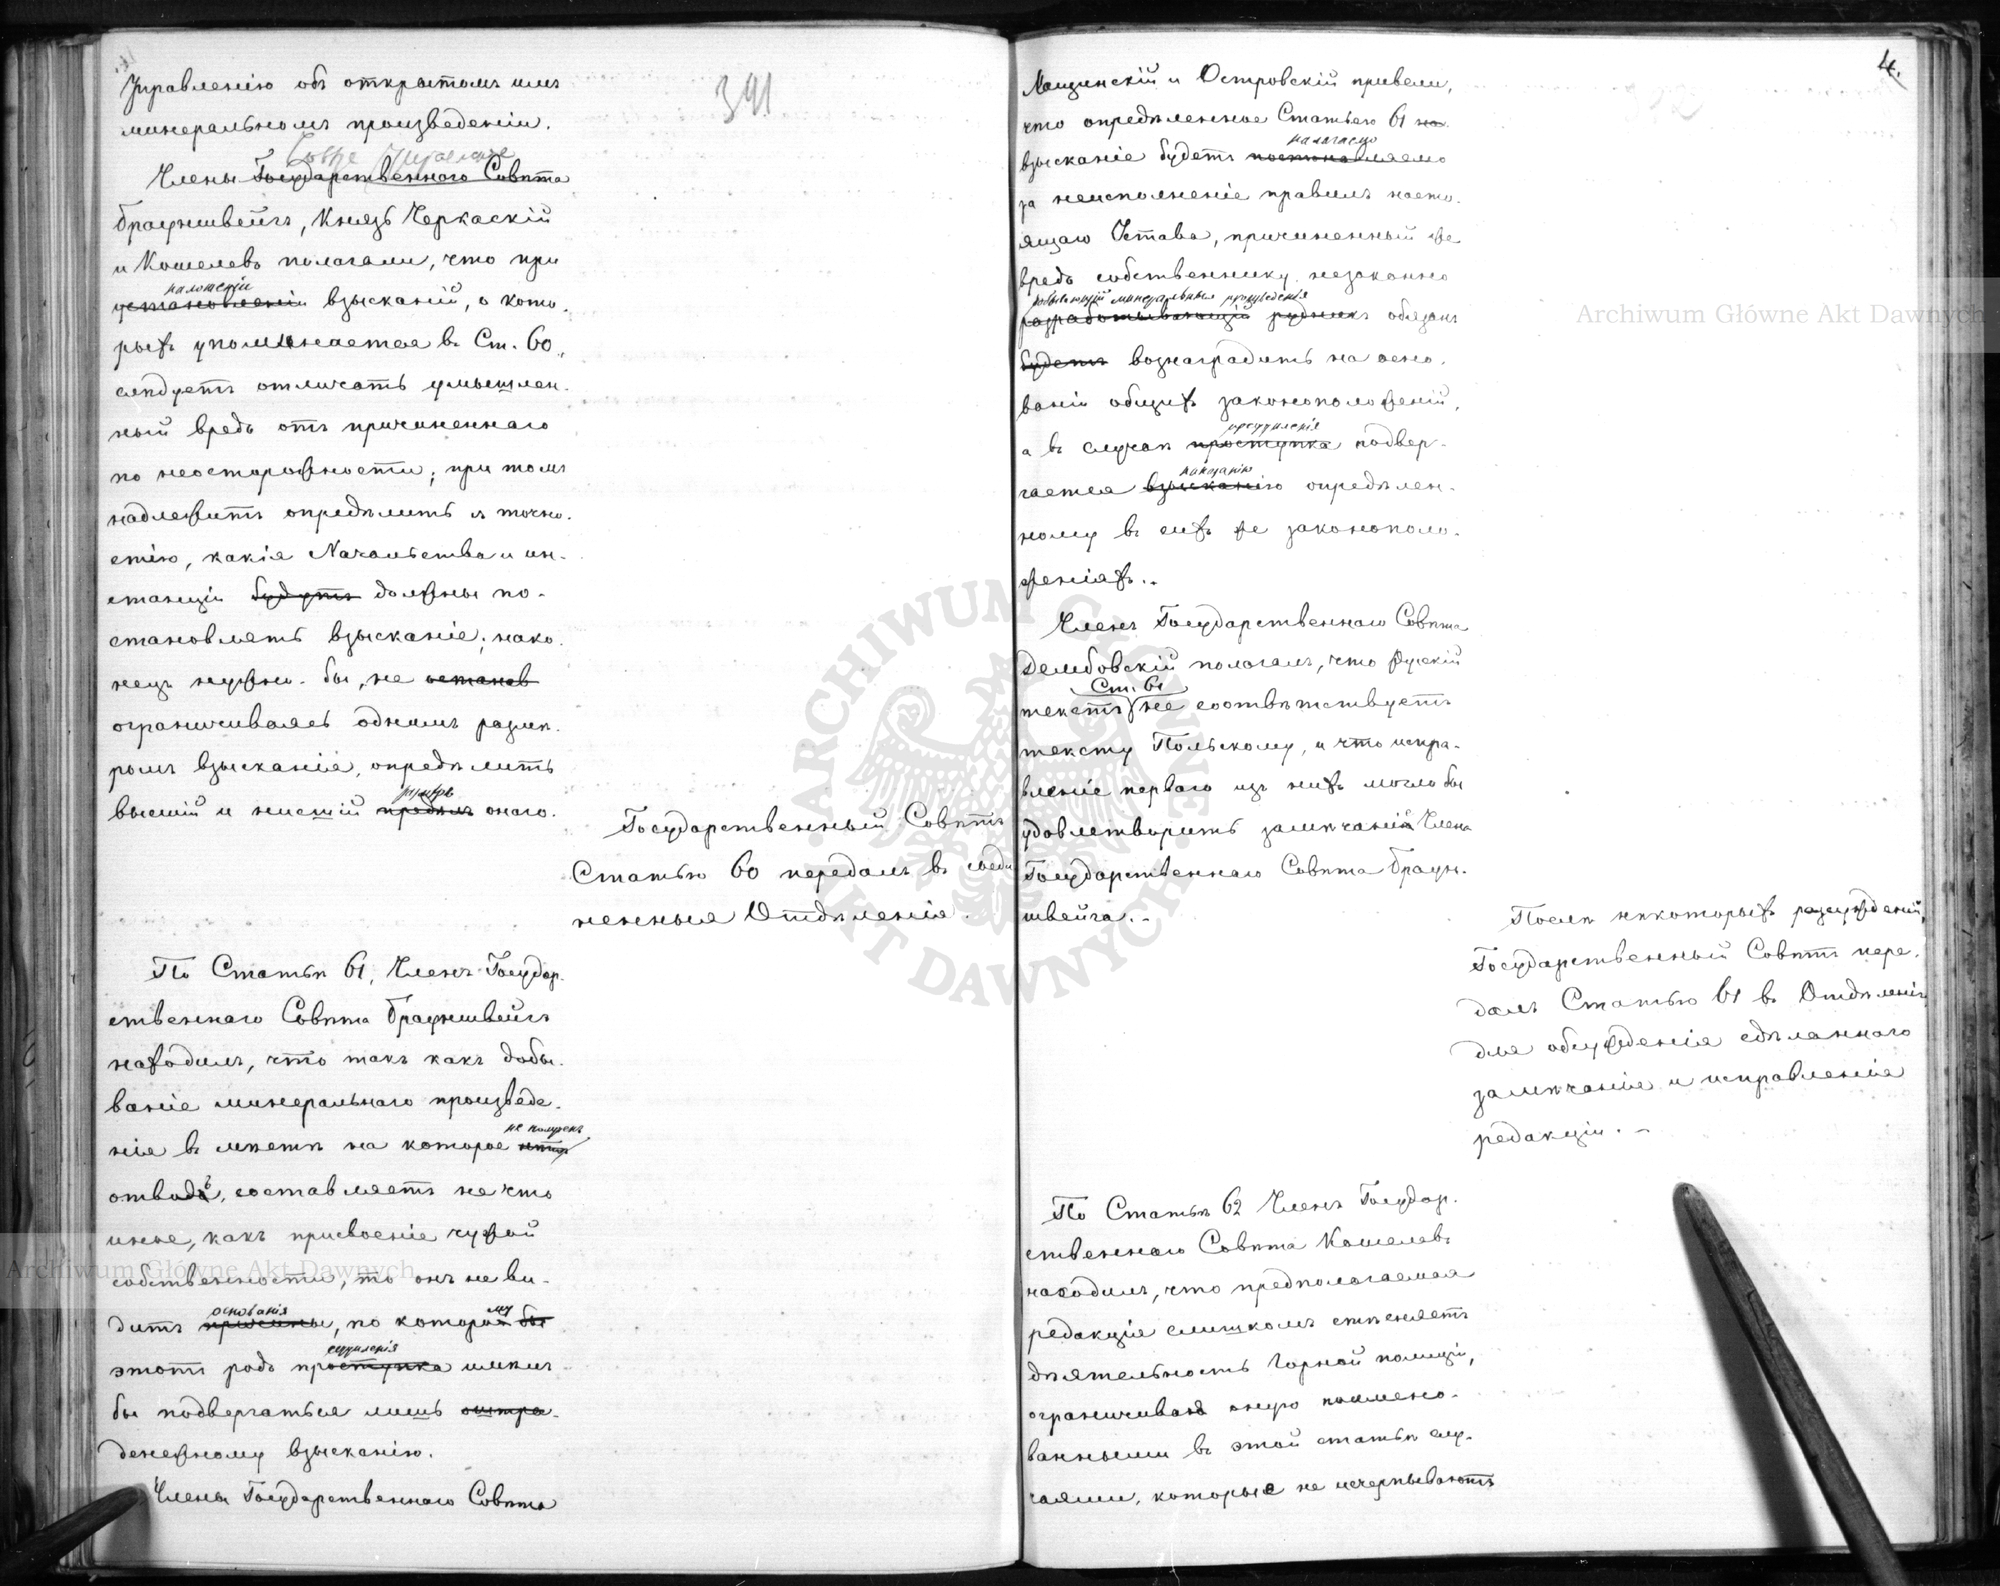 391
Управленію объ открытомъ имъ
минеральномъ произведеніи.
Члены Государственнаго Совѣта
Брауншвейгъ, Князь Черкаскій
и Кошелевъ полагали, что при
наложеніи
установленіи взысканій, о кото-
рыхъ упоминается въ Ст. 60,
слѣдуетъ отличать умышлен-
ный вредъ отъ причиненнаго
по неосторожности; при томъ
надлежитъ опредѣлить съ точно-
стію, какія Начальства и ин-
станціи будутъ должны по-
становлять взысканіе; нако-
нецъ нужно-бы, не останов
ограничиваясь однимъ размѣ-
ромъ взысканія, опредѣлить
размѣръ
высшій и нисшій предѣлъ онаго.
Государственный Совѣтъ
Статью 60 передалъ въ соеди
ненныя Отдѣленія.
По Статьѣ 61, Членъ Государ-
ственнаго Совѣта Брауншвейгъ
находилъ, что такъ какъ добы-
ваніе минеральнаго произведе-
не полученъ
нія въ мѣстѣ на которое нѣтъ
отвода, составляетъ не что
иное, какъ присвоеніе чужой
собственности, то онъ не ви-
основанія
дитъ причины, по которому бы
ступленія
этотъ родъ проступка имѣлъ
бы подвергаться лишь штра-
денежному взысканію.
Члены Государственнаго Совѣта
4.
и Островскій привели,
что опредѣленное Статьею 61 на-
налагаемо
взысканіе будетъ постановляемо
за неисполненіе правилъ насто-
ящаго Устава, причиненный же
вредъ собственнику незаконно
добывающій минеральныя произведенія
разработывающій рудникъ обязанъ
будетъ вознаградить на осно-
ваніи общихъ законоположеній,
преступленія
а въ случаѣ проступка подвер-
наказанію
гается взысканію опредѣлен-
ному въ сихъ же законополо-
женіяхъ.
Членъ Государственнаго Совѣта
Дембовскій полагалъ, что Русскій
Ст. 61
текстъ не соотвѣтствуетъ
тексту Польскому, и что испра-
вленіе перваго изъ нихъ могло бы
удовлетворить замѣчаній Члена
Государственнаго Совѣта Браун-
швейга.
Послѣ нѣкоторыхъ разсужденій,
Государственный Совѣтъ пере-
далъ Статью 61 въ Отдѣленія
для обсужденія сдѣланнаго
замѣчанія и исправленія
редакціи.
По Статьѣ 62 Членъ Государ-
ственнаго Совѣта Кошелевъ
находилъ, что предполагаемая
редакція слишкомъ стѣсняетъ
дѣятельность Горной полиціи,
ограничивая оную поимено-
ванными въ этой статьѣ слу-
чаями, которые не исчерпываютъ
Archiwum Główne Akt Dawnych
Archiwum Główne Akt Dawnych
ARCHIWUM GŁÓWNE AKT DAWNYCH